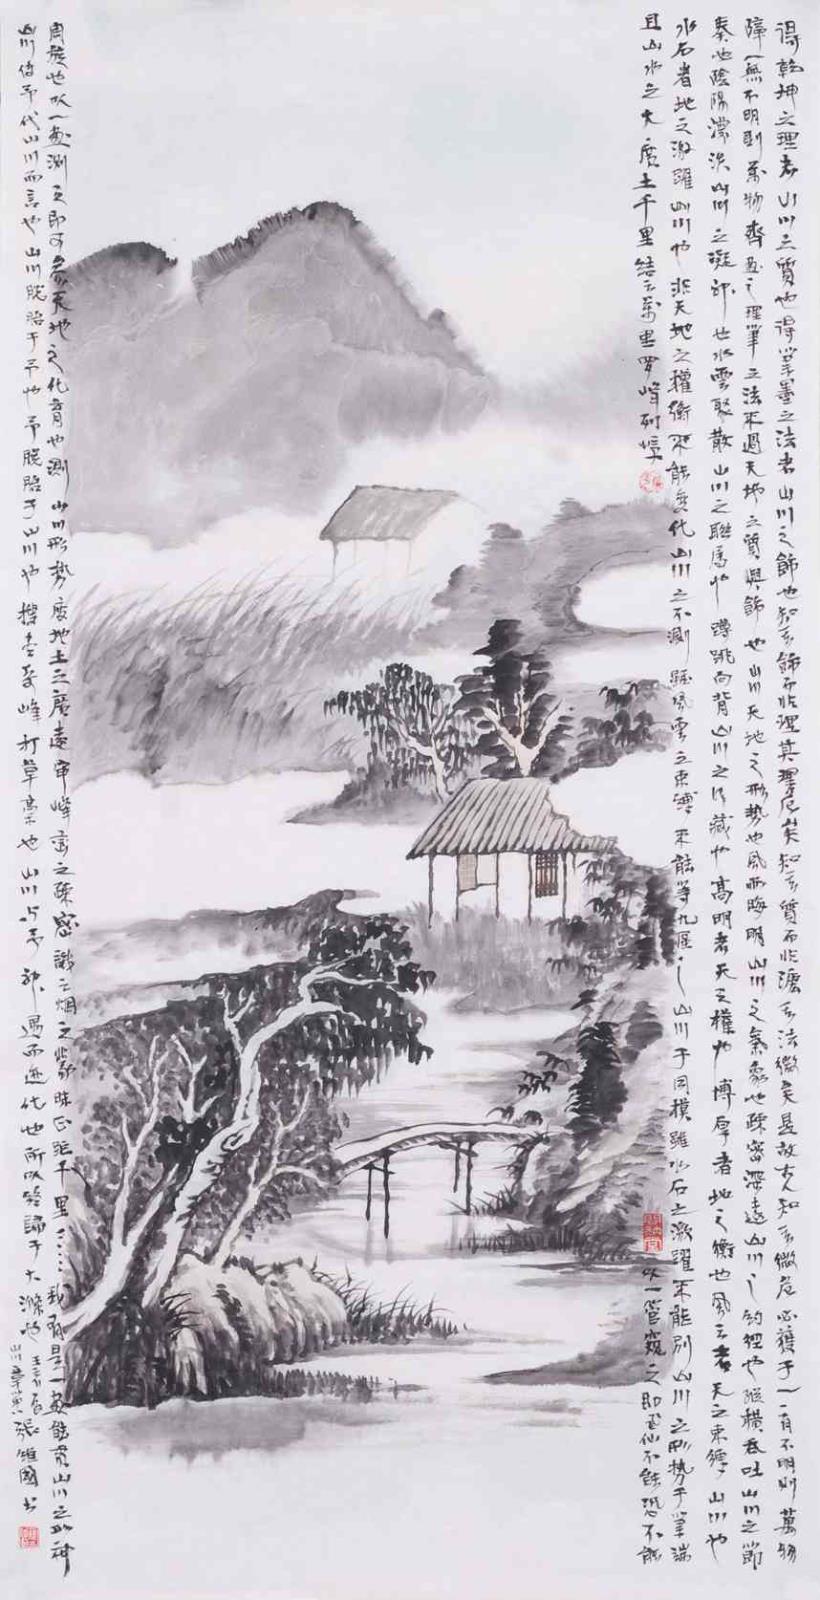 得乾坤之理者山川之質也得筆墨之法者山川之飾也知其飾而非理其理危矣知其質而非法其法微矣是故古人知其微危必獲于一一有不明則萬物
障一無不明則萬物齊畫之理筆之法不過天地之質與飾也山川天地之形勢也風雨晦明山川之氣象也疎密深遠山川之約徑也縱橫吞吐山川之節
奏也陰陽濃淡山川之凝神也水雲聚散山川之聯屬也蹲跳向背山川之行藏也高明者天之權也博厚者地之衡也風雲者天之束縛山川也
水石者地之激躍山川也非天地之權衡不能變化山川之不測雖風雲之束縛不能等九區之山川于同模雖水石之激躍不能別山川之形勢于筆端
且山水之大廣土千里結云萬里罗峰列嶂
以一管窺之即飛仙不能恐不能
周旋也以一画測之即可參天地之化育也測山川形勢度地土之廣遠審峰嶂之疎密識云烟之蒙昧正踞千里……我有是一画能貫山川之形神
山川使予代山川而言也山川脫胎于予也予脫胎于山川也搜尽奇峰打草稾也山川与予神遇而迹化也所以終歸于大滌也
山川章
張維國书